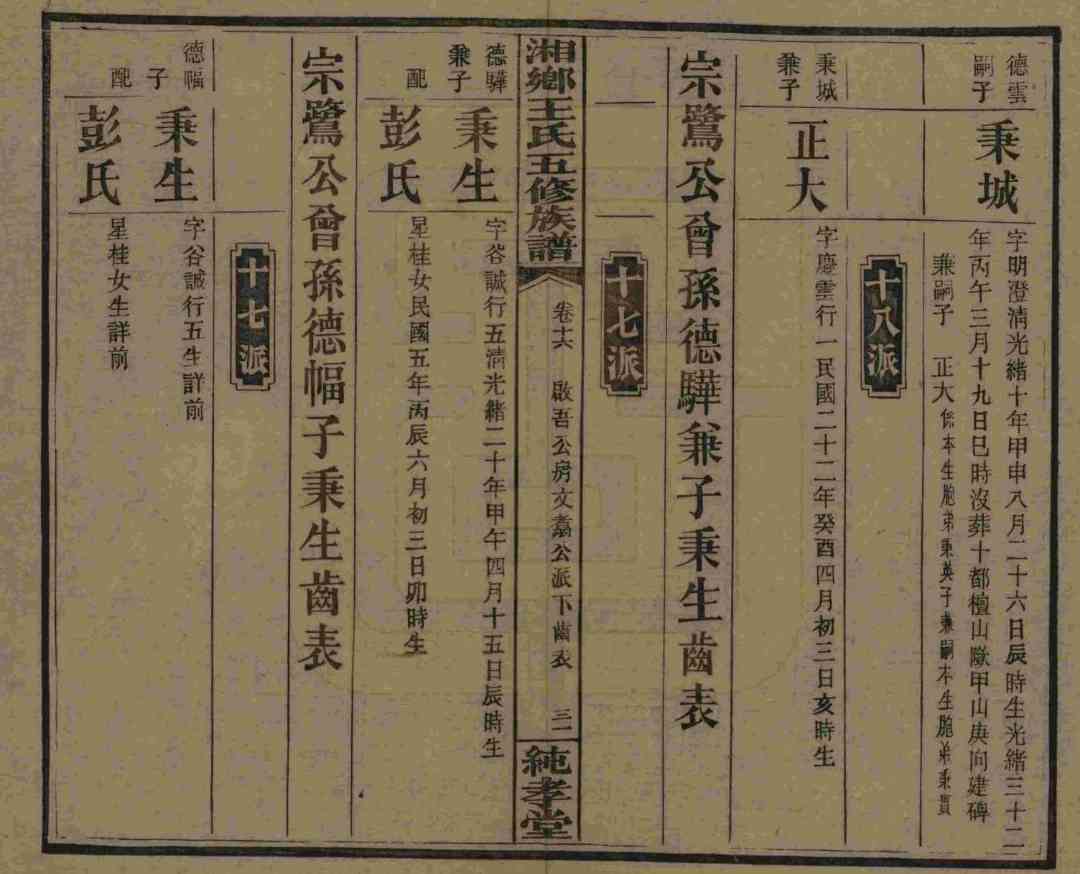 德雲
嗣子
秉城
字明澄清光緒十年甲申八月二十六日辰時生光緒三十二
年丙午三月十九日巳時沒葬十都檀山嶽甲山庚向建碑
兼嗣子 正大係本生胞弟秉英子兼嗣本生胞弟秉貫
十八派
秉城
兼子
正大
字慶雲行一民國二十二年癸酉四月初三日亥時生
宗鷺公曾孫德驊兼子秉生齒表
十七派
湘鄉王氏五修族譜
卷十六 啟吾公房文翥公派下齒表 三一
純孝堂
德驊
兼子
秉生
字谷誠行五清光緒二十年甲午四月十五日辰時生
配
彭氏
星桂女民國五年丙辰六月初三日卯時生
宗鷺公曾孫德幅子秉生齒表
十七派
德幅
子
秉生
字谷誠行五生詳前
配
彭氏
星桂女生詳前